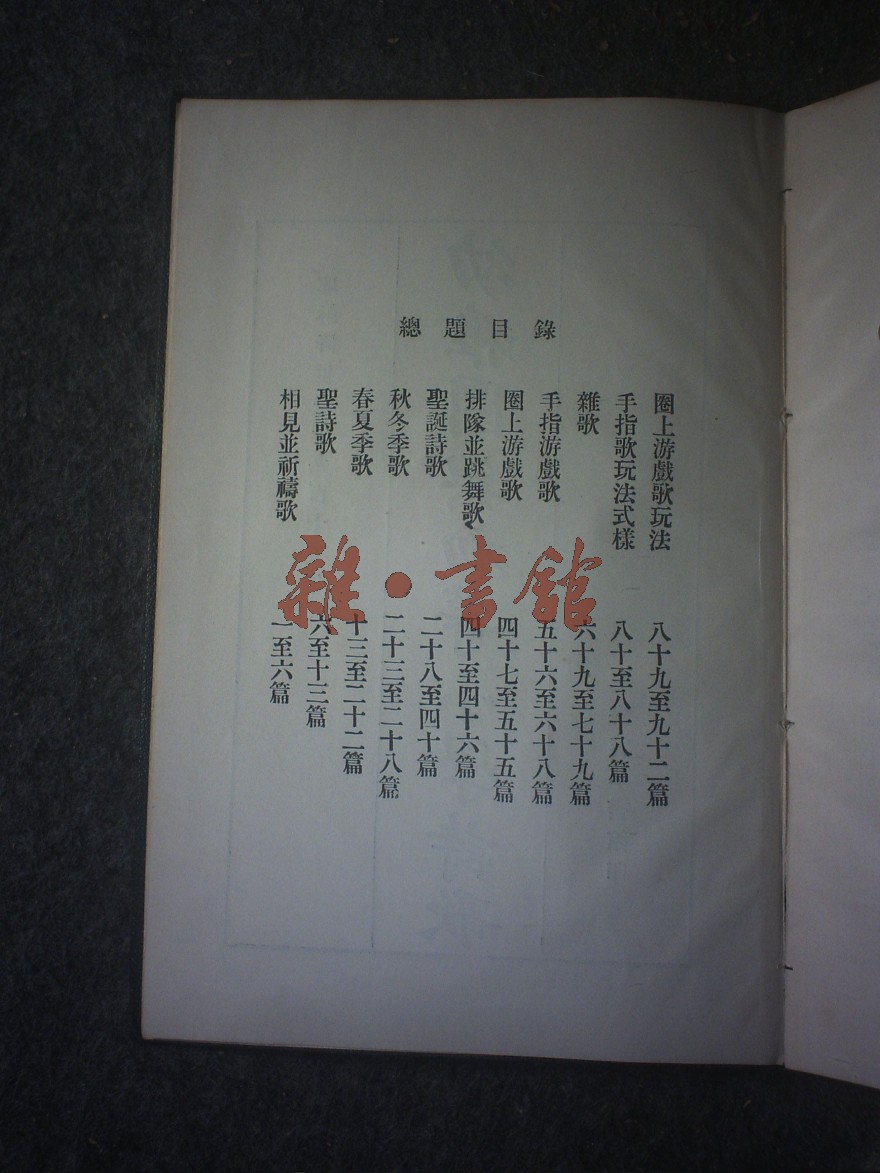 總題目錄
相見並祈禱歌 一至六篇
聖詩歌 六至十三篇
春夏季歌 十三至二十二篇
秋冬季歌 二十三至二十八篇
聖誕詩歌 二十八至四十篇
排隊並跳舞歌 四十至四十六篇
圈上游戲歌 四十七至五十五篇
手指游戲歌 五十六至六十八篇
雜歌 六十九至七十九篇
手指歌玩法式樣 八十至八十八篇
圈上游戲歌玩法 八十九至九十二篇
雜·書館